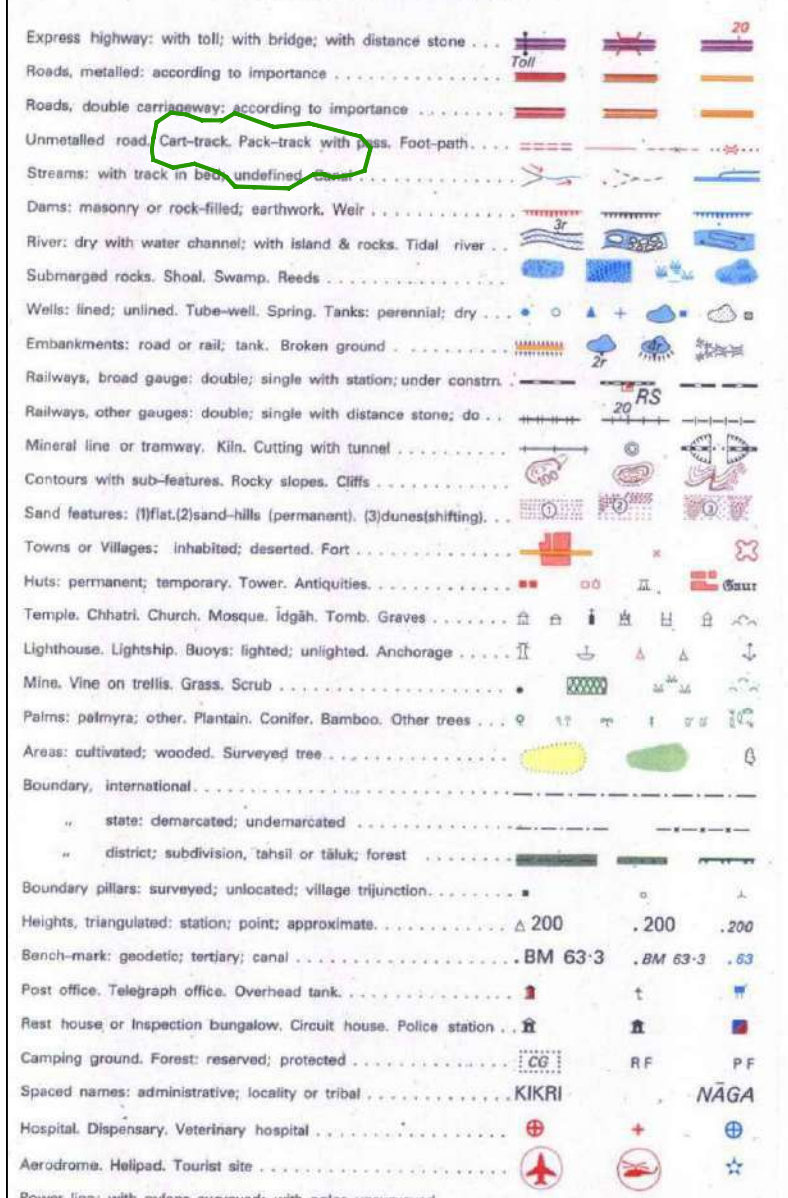 Express highway: with toll; with bridge; with distance stone . . . Toll 20
Roads, metalled: according to importance
Roads, double carriageway: according to importance
Unmetalled road. Cart-track. Pack-track with pass. Foot-path
Streams: with track in bed; undefined. Canal
Dams: masonry or rock-filled; earthwork. Weir
River: dry with water channel; with island & rocks. Tidal river . . 3r
Submerged rocks. Shoal. Swamp. Reeds
Wells: lined; unlined. Tube-well. Spring. Tanks: perennial; dry
Embankments: road or rail; tank. Broken ground 2r 4r
Railways, broad gauge: double; single with station; under constrn. RS
Railways, other gauges: double; single with distance stone; do . . 20
Mineral line or tramway. Kiln. Cutting with tunnel
Contours with sub-features. Rocky slopes. Cliffs 100
Sand features: (1)flat.(2)sand-hills (permanent). (3)dunes(shifting). 1 2 3
Towns or Villages: inhabited; deserted. Fort
Huts: permanent; temporary. Tower. Antiquities. Gaur
Temple. Chhatri. Church. Mosque. Īdgāh. Tomb. Graves
Lighthouse. Lightship. Buoys: lighted; unlighted. Anchorage
Mine. Vine on trellis. Grass. Scrub
Palms: palmyra; other. Plantain. Conifer. Bamboo. Other trees
Areas: cultivated; wooded. Surveyed tree
Boundary, international
„ state: demarcated; undemarcated
„ district; subdivision, tahsil or tāluk; forest
Boundary pillars: surveyed; unlocated; village trijunction
Heights, triangulated: station; point; approximate. 200 .200 .200
Bench-mark: geodetic; tertiary; canal .BM 63·3 .BM 63·3 .63
Post office. Telegraph office. Overhead tank.
Rest house or Inspection bungalow. Circuit house. Police station
Camping ground. Forest: reserved; protected CG RF PF
Spaced names: administrative; locality or tribal KIKRI NĀGA
Hospital. Dispensary. Veterinary hospital
Aerodrome. Helipad. Tourist site